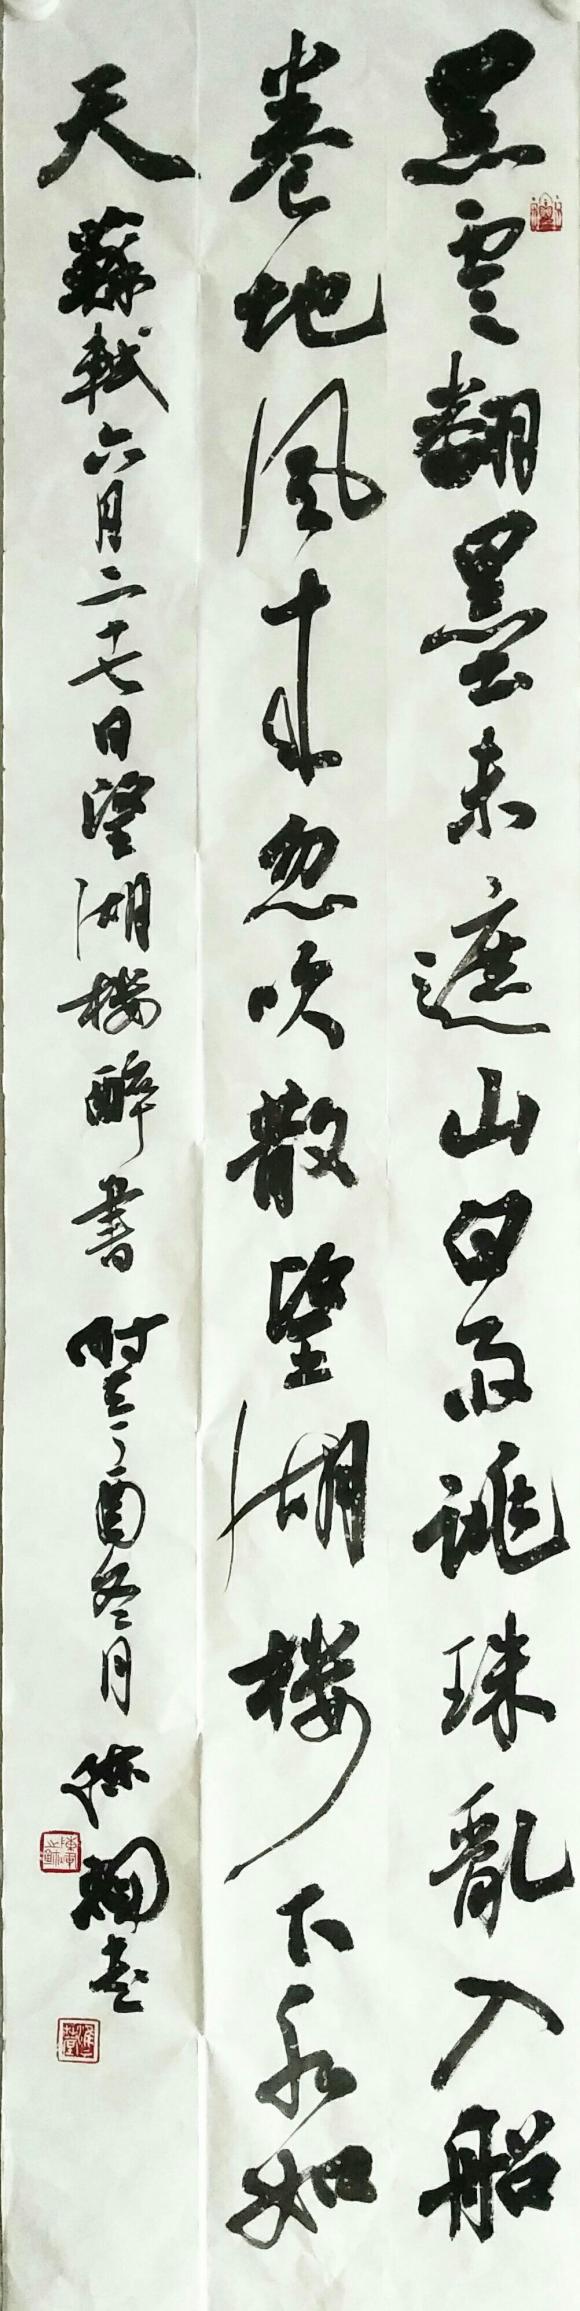 黑雲翻墨未遮山白雨跳珠亂入船
卷地風來忽吹散望湖楼下水如
天 蘇軾六月二十七日望湖楼醉書 時在丁酉冬月 陈